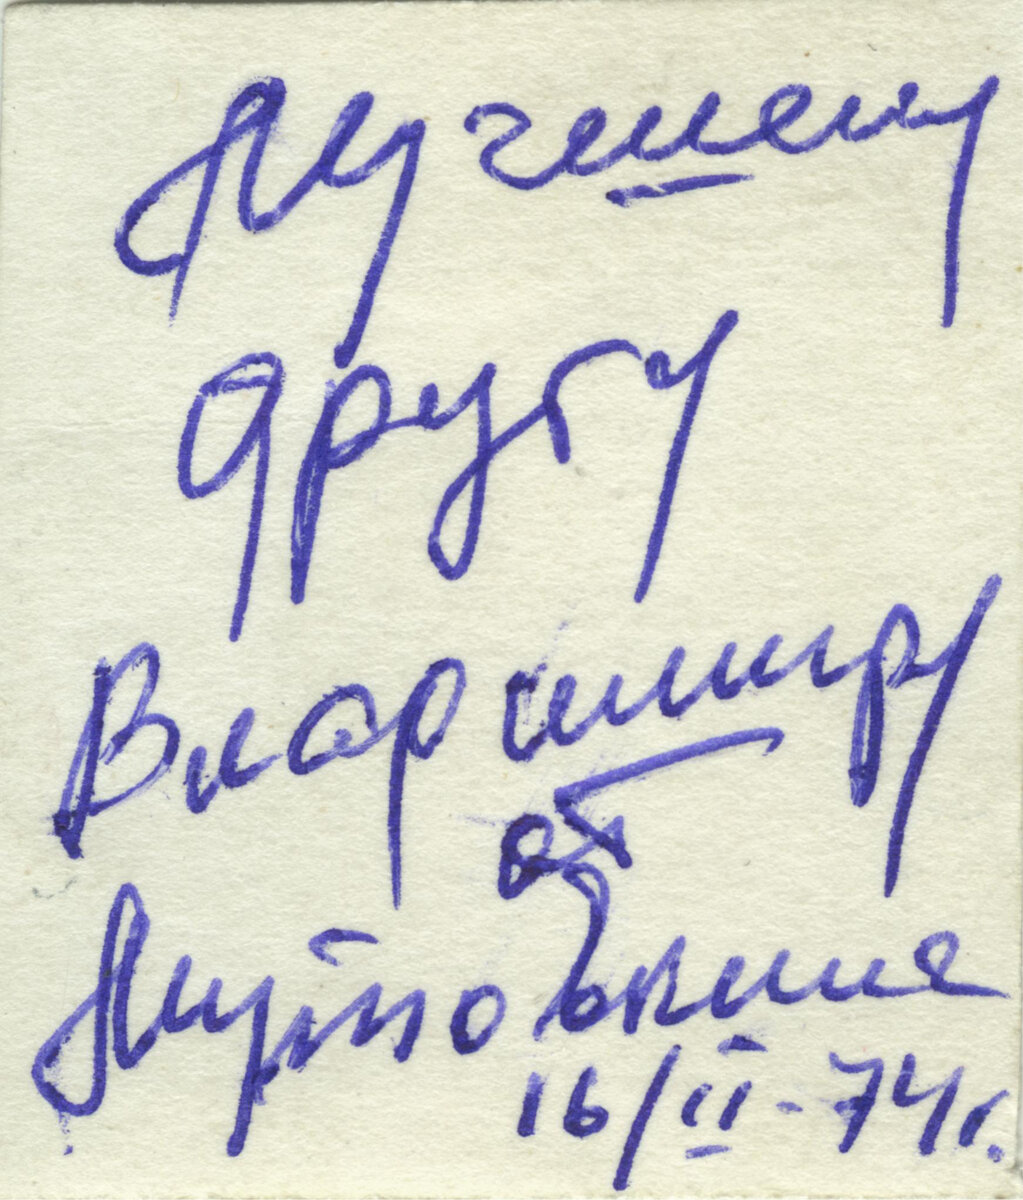 Лучшему
другу
Владимиру
от
Лутовкина
16/II-74г.